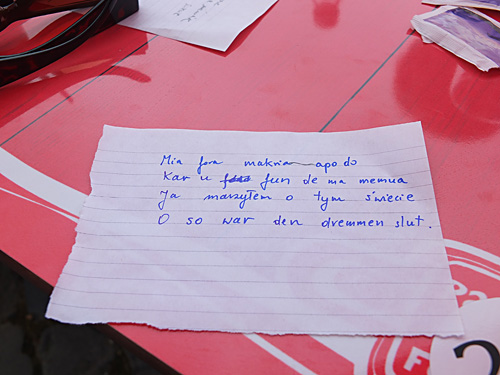 Mia fora makria apo do
Kar u fun de ma memua
Ja marzyłem o tym świecie
O so war den dremmen slut.
2